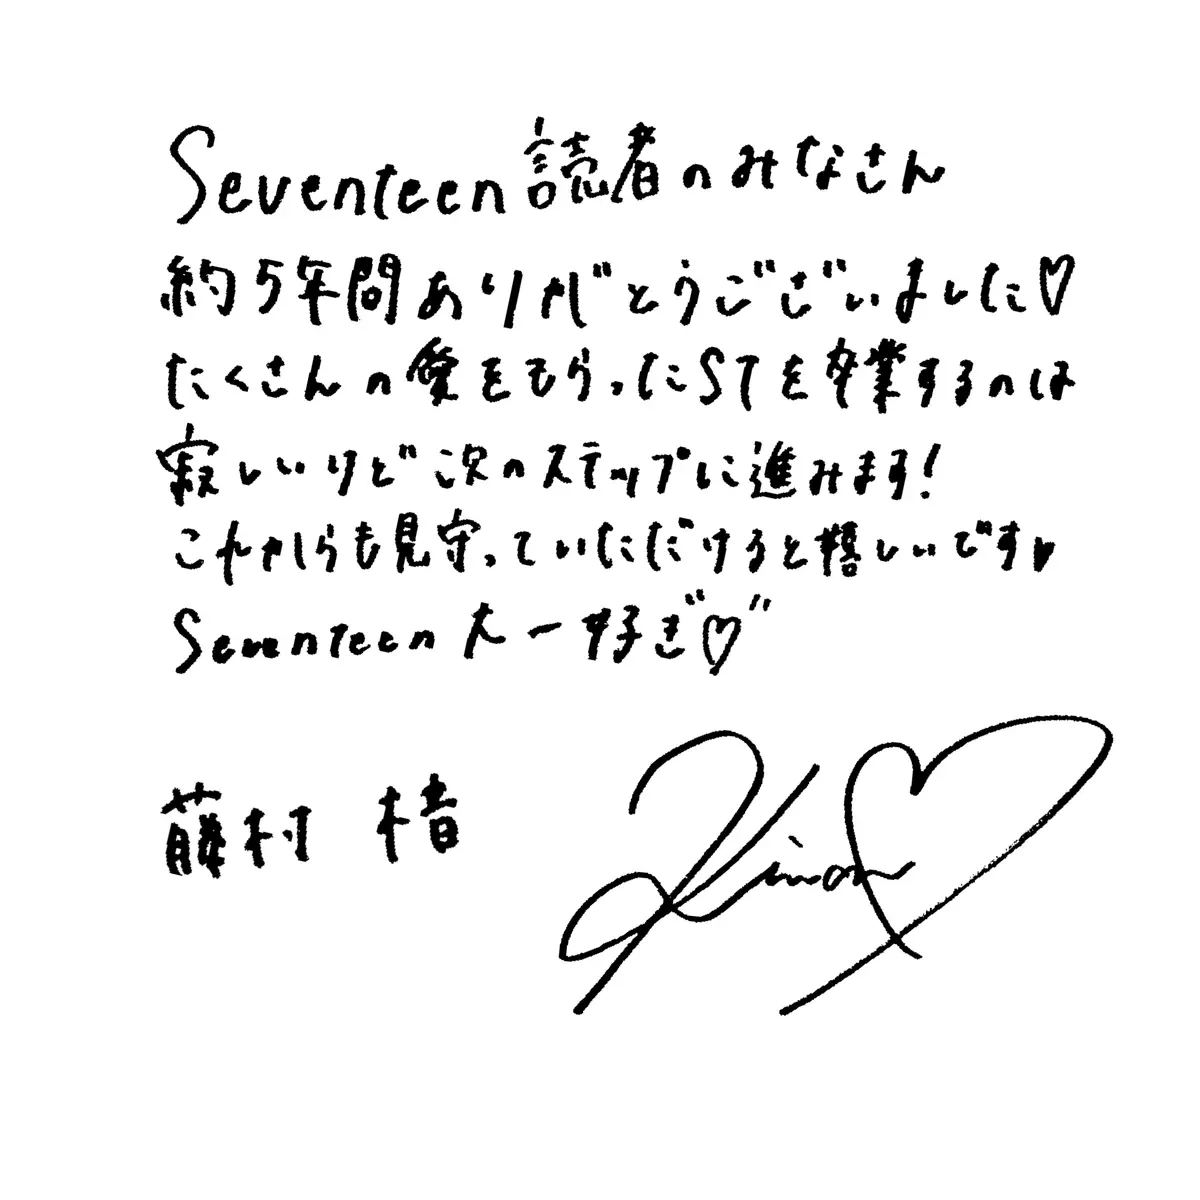 Seventeen読者のみなさん
約5年間ありがとうございました♡
たくさんの愛をもらったSTを卒業するのは
寂しいけど次のステップに進みます!
これからも見守っていただけると嬉しいです♥
Seventeen大一好きﾞ♡ﾞ
藤村 椿
Kinon♡